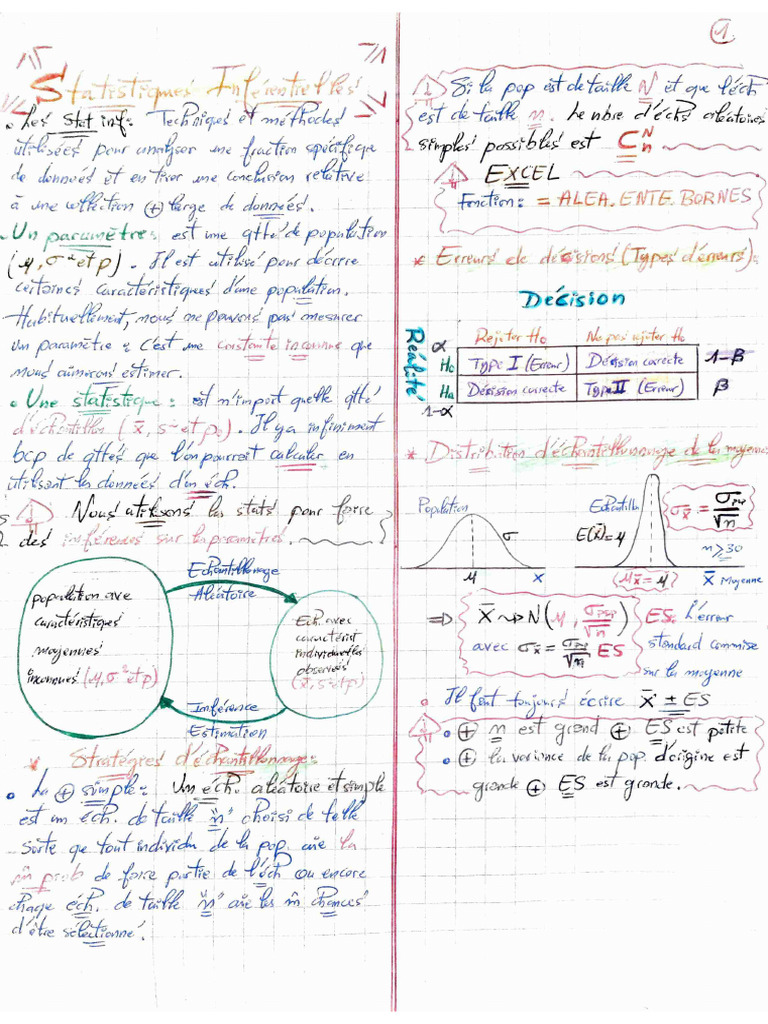 1
Statistiques Inférentielles
• Les Stat inf: Techniques et méthodes
utilisées pour analyser une fraction spécifique
de données et en tirer une conclusion relative
à une collection ⊕ large de données.
- Un paramètre: est une qtté de population
(μ, σ² et p). Il est utilisé pour décrire
certaines caractéristiques d'une population.
Habituellement, nous ne pouvons pas mesurer
un paramètre; c'est une constante inconnue que
nous aimerons estimer.
• Une statistique: est n'import quelle qtté
d'échantillon (x̄, s² et p₀). Il y a infiniment
bcp de qttés que l'on pourrait calculer en
utilisant les données d'un éch.
Nous utilisons les stats pour faire
des inférences sur les paramètres.
population ave
caractéristiques
moyennes
inconnues (μ, σ² et p)
Echantillonage
Aléatoire
Ech. avec
caractérist
individuelles
observées
(x̄, s² et p)
Inférence
Estimation
* Stratégies d'échantillonnage:
• La ⊕ simple: Un éch. aléatoire et simple
est un éch. de taille "n" choisi de telle
sorte que tout individu de la pop. aie la
m̂ prob de faire partie de l'éch ou encore
chaqe éch. de taille "n" aie les m̂ chances
d'être sélectionné.
Si la pop est de taille N et que l'éch
est de taille n. Le nbre d'échs aléatoires
simples possibles est C N n
EXCEL
Fonction: = ALEA.ENTE.BORNES
* Erreurs de décisions (Types d'erreurs):
Décision
Réalité
α Rejeter H₀ Ne pas rejeter H₀
H₀ Type I (Erreur) Décision correcte 1-β
Ha Décision correcte Type II (Erreur) β
1-α
* Distribution d'échantillonnage de la moyenne
Population
σ
μ x
Echantillon
E(x̄)=μ
σx̄ = σpop/√n
n≥30
(μx̄ = μ) x̄ Moyenne
⇒ X̄ ~> N(μ, σpop/√n) ES: L'erreur
avec σx̄ = σpop/√n ES standard commise
sur la moyenne
• Il faut toujours écrire x̄ ± ES
• ⊕ n est grand ⊕ ES est petite
• ⊕ la variance de la pop. d'origine est
grande ⊕ ES est grande.